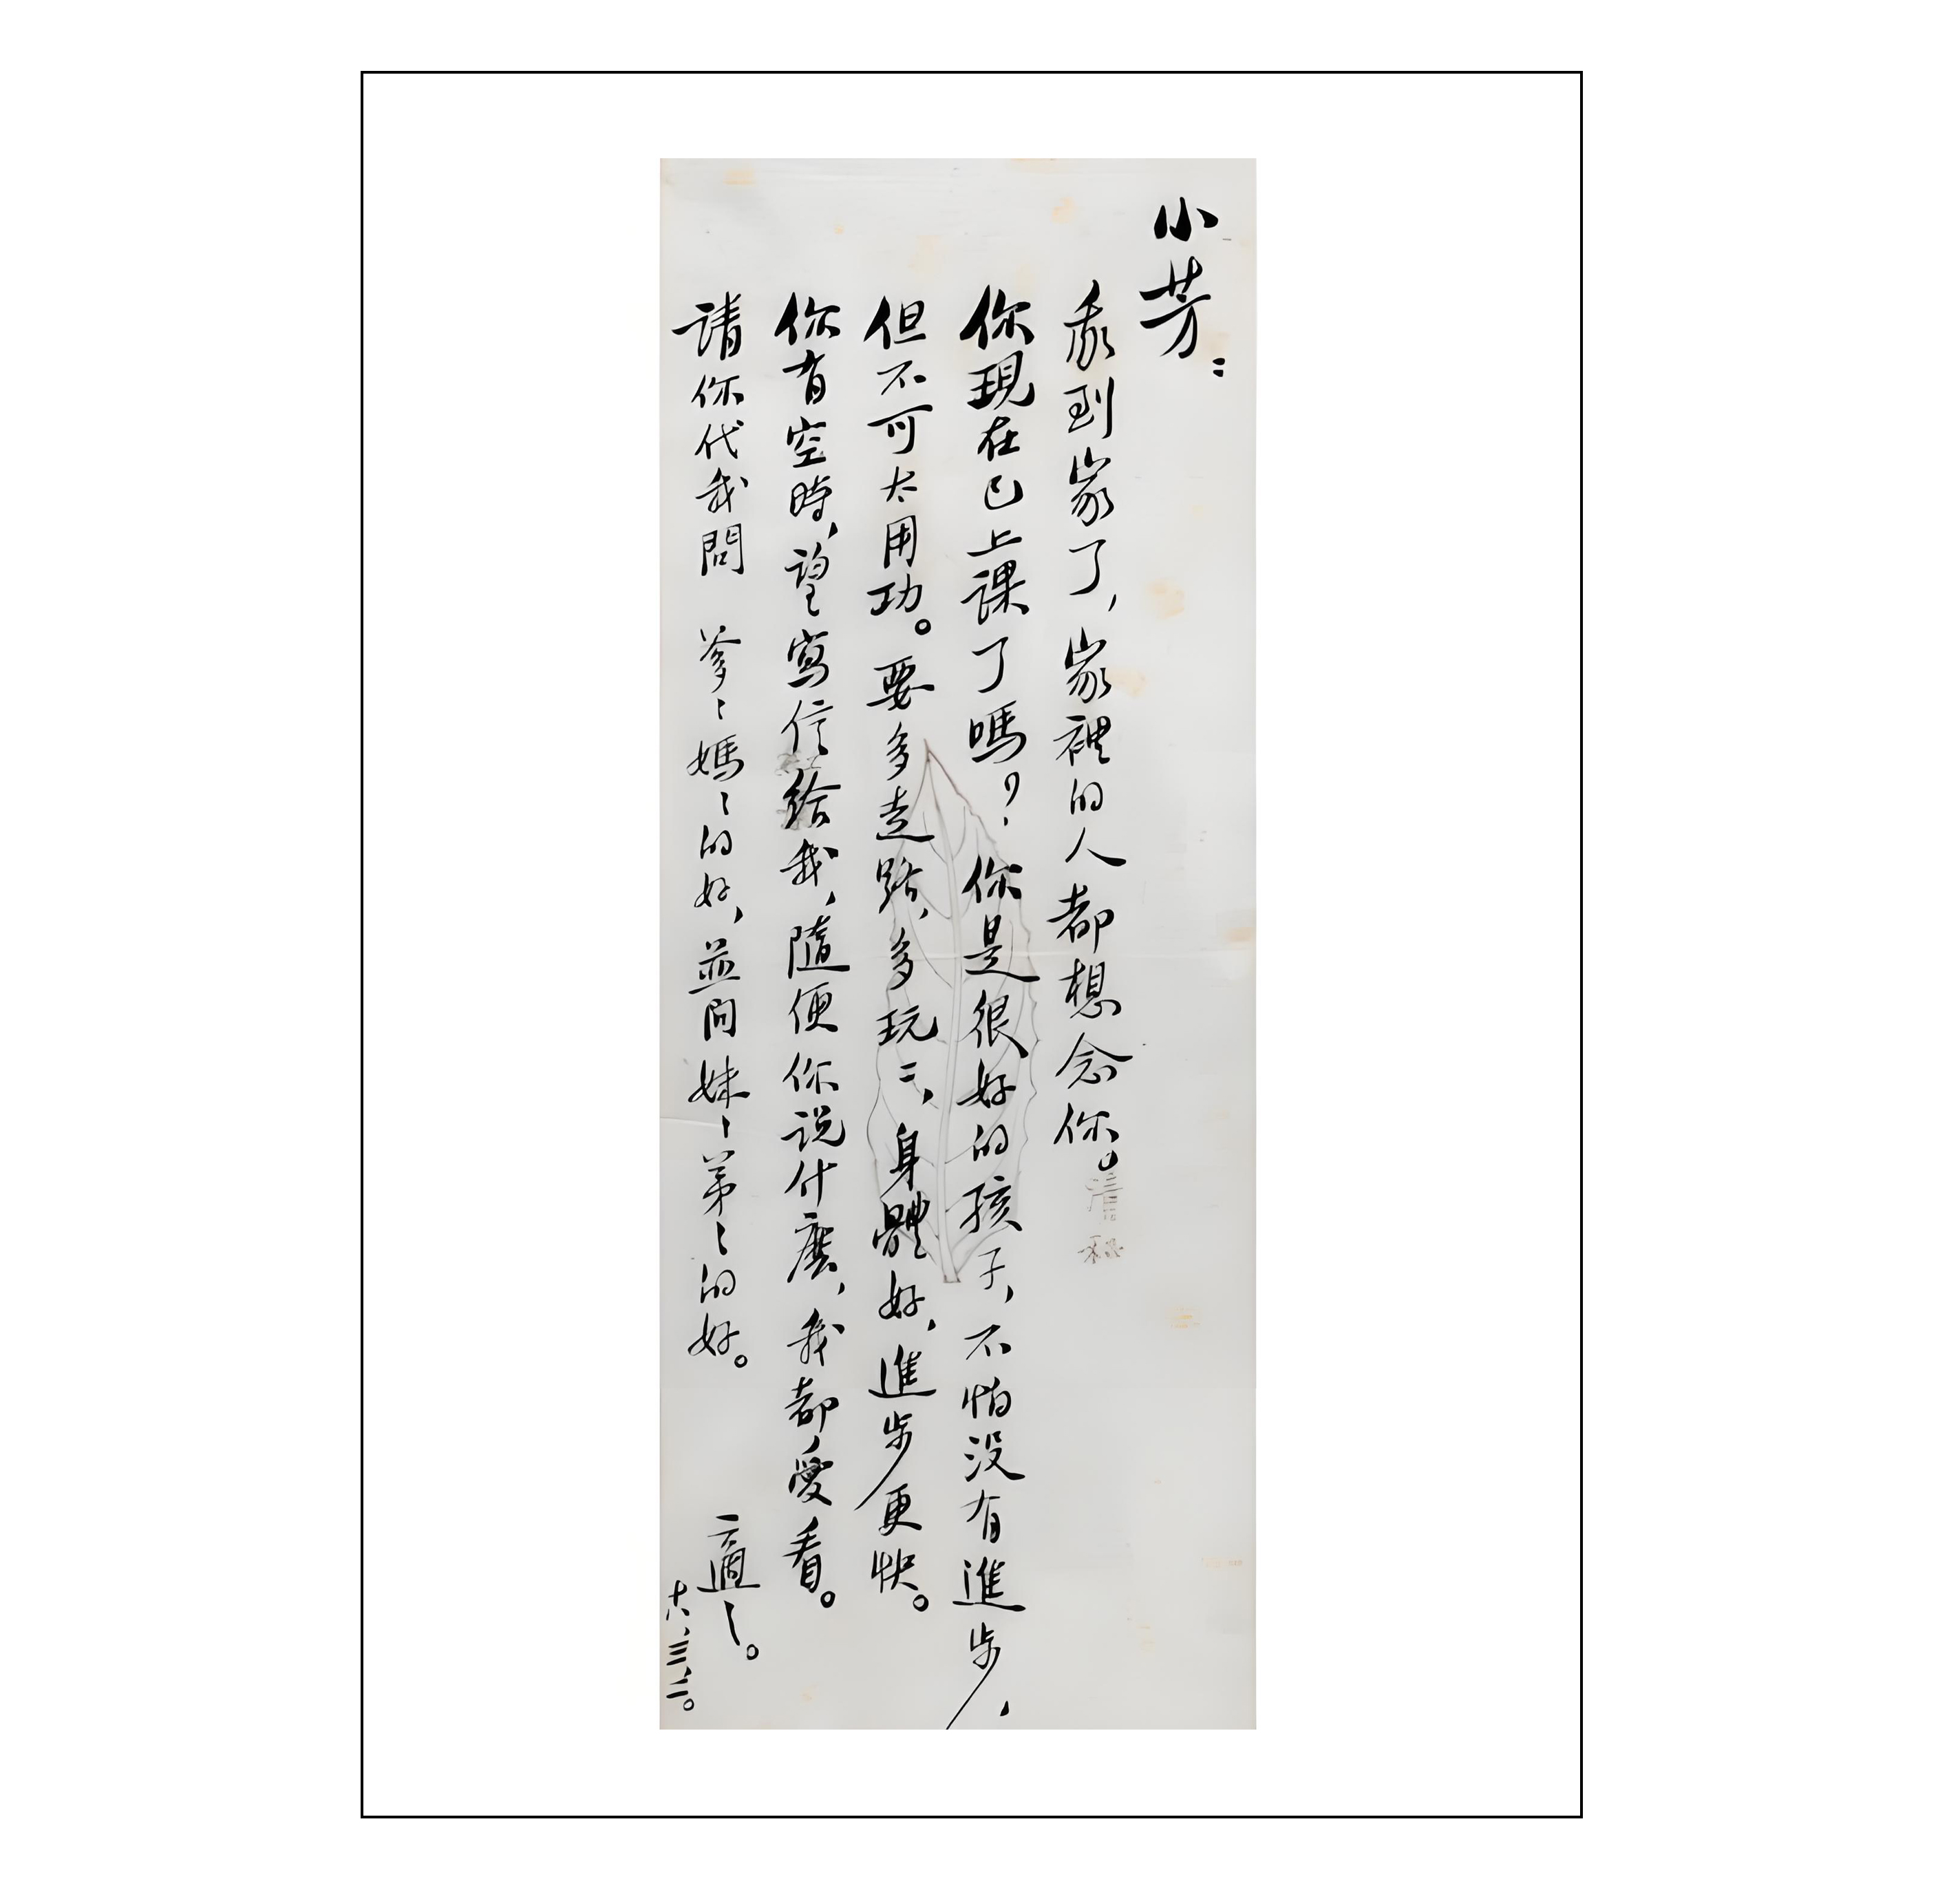 小芳：
我到家了，家裡的人都想念你。
你現在已上課了嗎？你是很好的孩子，不怕没有進步，
但不可太用功。要多走路，多玩二，身體好，進步更快。
你有空時，望寫信給我，隨便你說什麽，我都愛看。
請你代我問 爹〻媽〻的好，並問妹〻弟〻的好。
適〻。
十八、三、二。
清秘